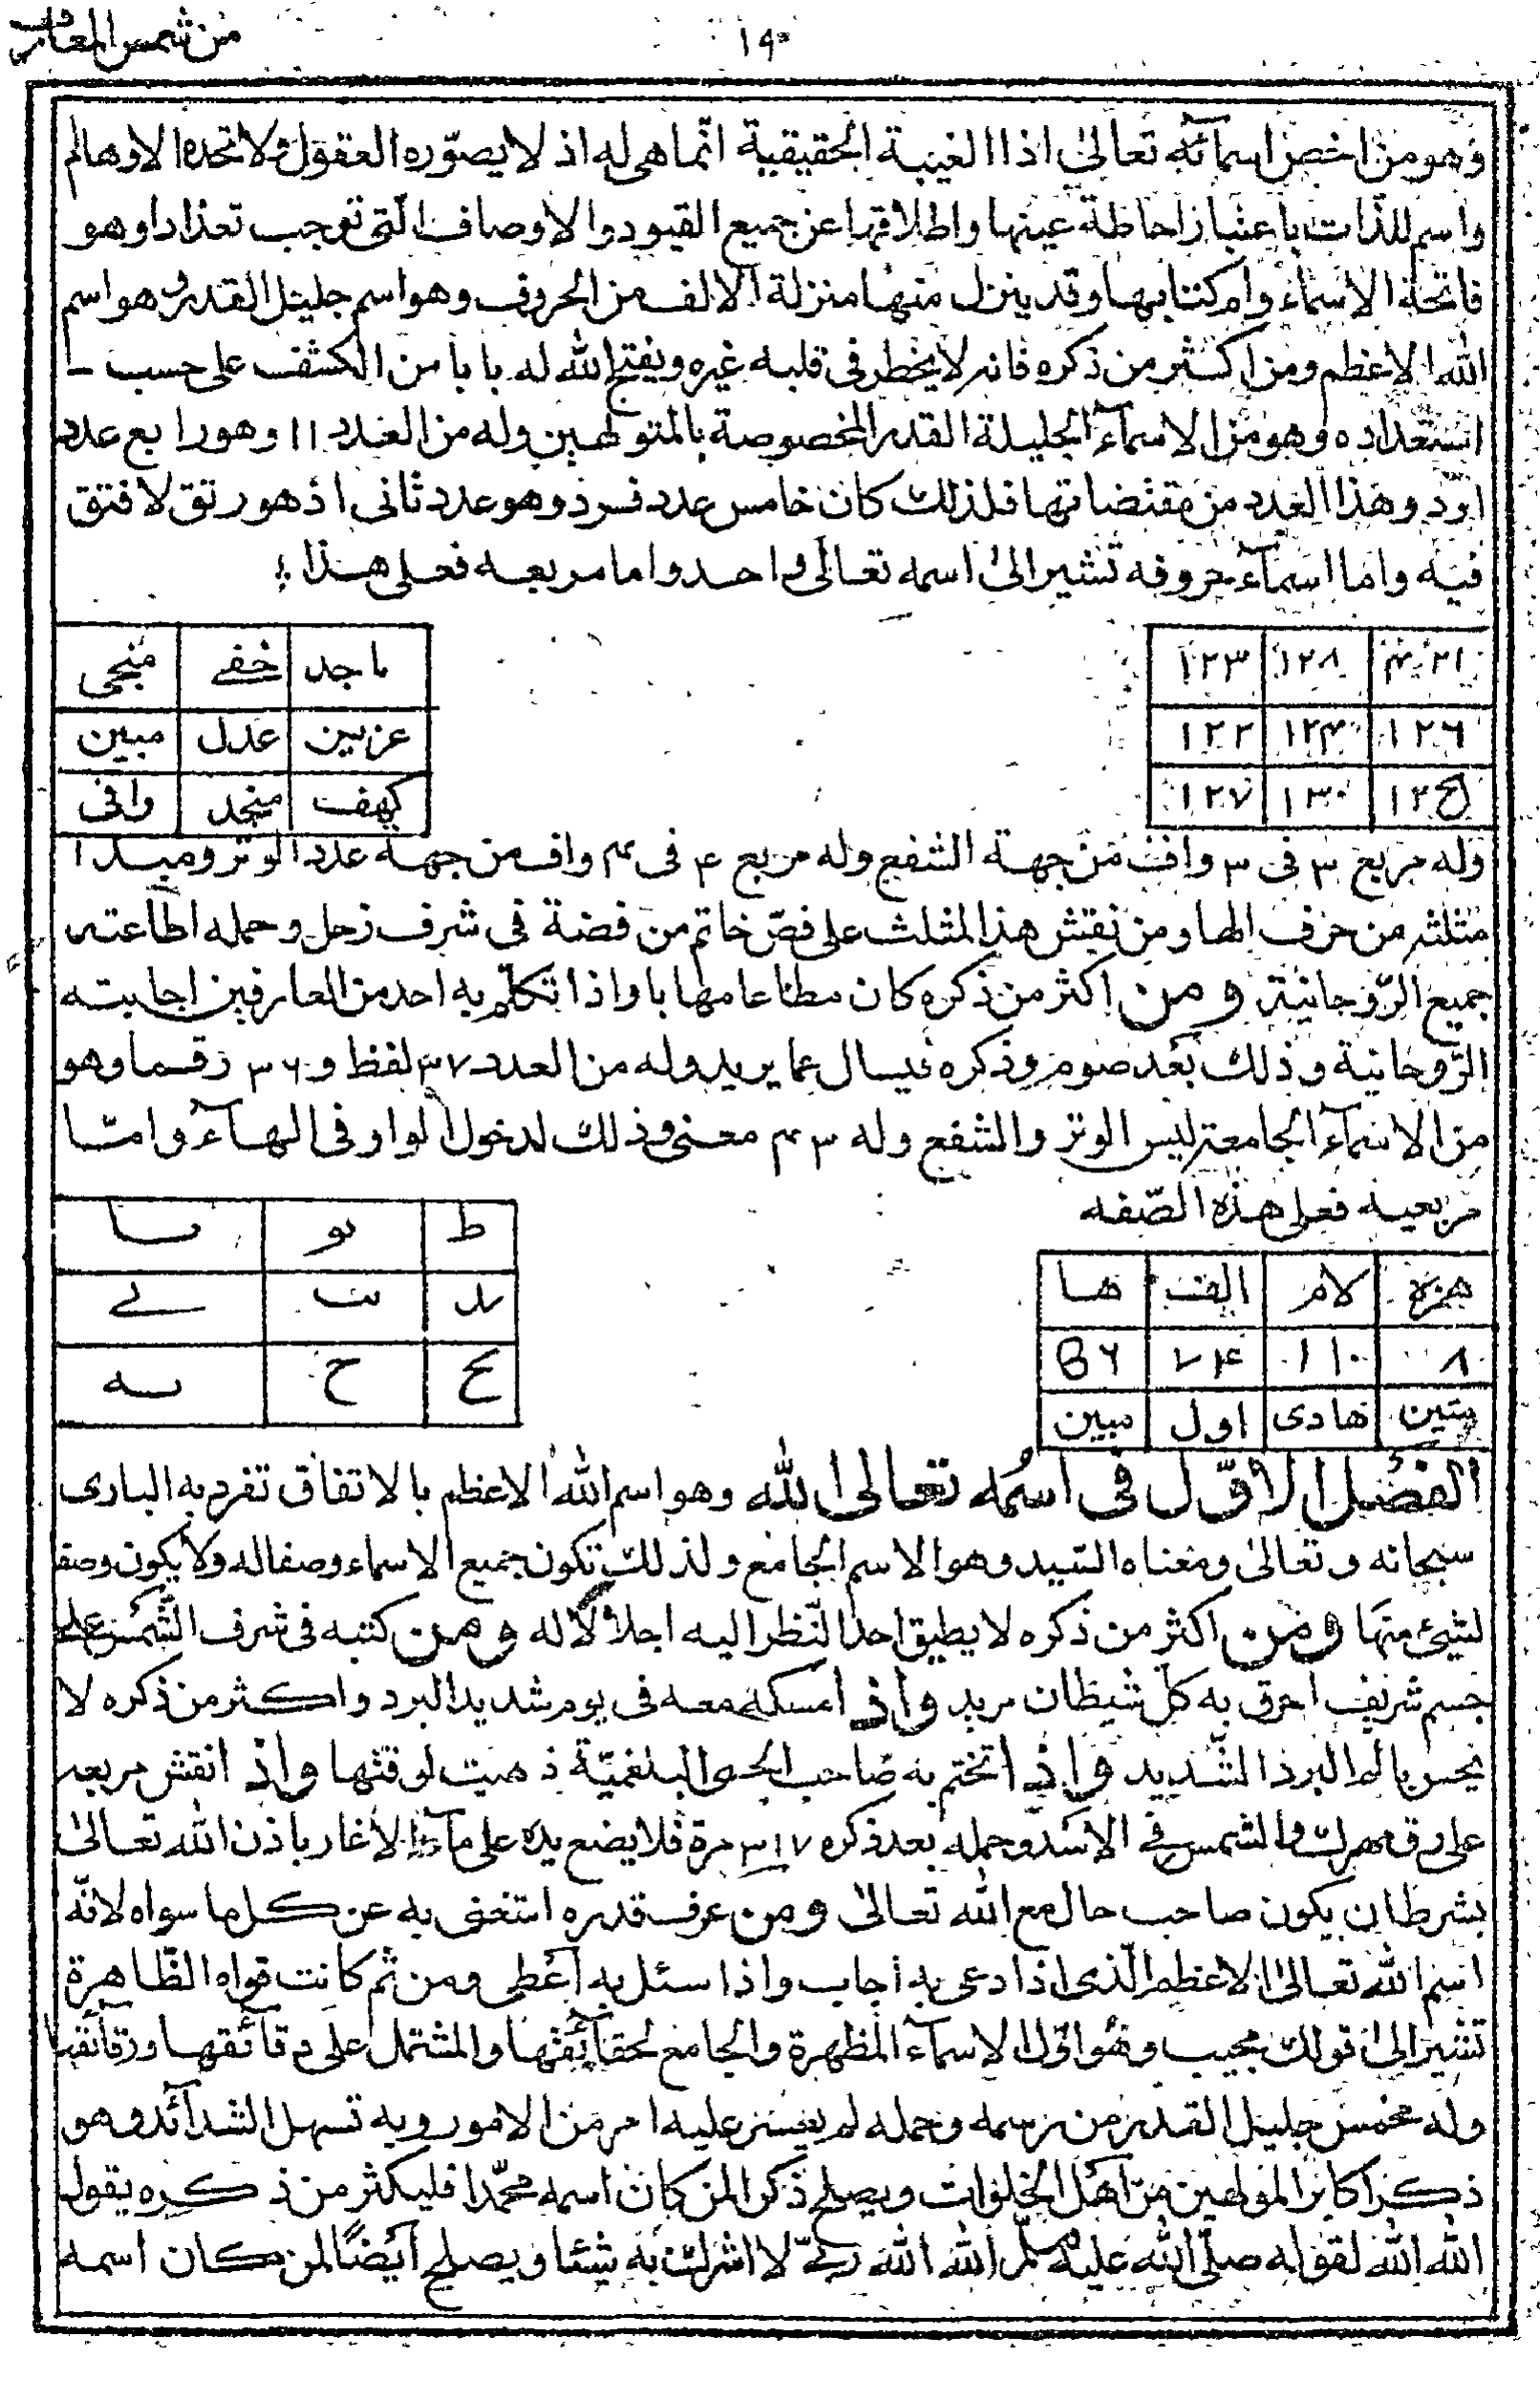 ١٩٠
من شمس المعارف
وهو من اخص اسمائه تعالى اذ الغيبة الحقيقية انما هى له اذ لا يصوّره العقول ولا تحده الاوهام
واسم للذات باعتبار احاطة عينها واطلاقها عن جميع القيود والاوصاف الّتى توجب تعدادا وهو
فاتحة الاسماء وام كتابها وقد ينزل منها منزلة الالف من الحروف وهو اسم جليل القدر وهو اسم
الله الاعظم ومن اكثر من ذكره فانه لا يخطر فى قلبه غيره ويفتح الله له بابا من الكشف على حسب
استعداده وهو من الاسماء الجليلة القدر المخصوصة بالمتولهين وله من العدد ١١ وهو رابع عدد
اوّد وهذا العدد من مقتضاتها فلذلك كان خامس عدد فرد وهو عدد ثانى اذ هو رتق لا فتق
فيه واما اسماء حروفه تشير الى اسمه تعالى واحد واما مربعه فعلى هذا
١٢٣ ١٢٨
١٢٦ ١٢٤ ١٢٢
١٣٠ ١٢٧
ماجد خفى منجى
عزيز عدل مبين
كهف منجد وافى
وله مربع ٣ فى ٣ وافف من جهة الشفع وله مربع ٤ فى ٤ وافف من جهة عدد الوتر ومبدا
مثلثه من حرف الها ومن نقش هذا المثلث على فصّ خاتم من فضة فى شرف زحل وحمله اطاعته
جميع الرّوحانية ومن اكثر من ذكره كان مطاعا مهابا واذا تكلّم به احد من العارفين اجابته
الرّوحانية وذلك بعد صوم وذكره فيسال عما يريد وله من العدد ٣٧ لفظ و ٣٦ رقما وهو
من الاسماء الجامعة ليس الوتر والشفع وله ٤٣ معنى وذلك لدخول الواو فى الهاء وامّا
مربعيه فعلى هذه الصّفه
همزة لام الف ها
٨ ١١٠ ٧٤
متين هادى اول مبين
ط
ح
الفصل الاوّل فى اسمه تعالى الله وهو اسم الله الاعظم بالاتفاق تفرد به البارى
سبحانه وتعالى ومعناه السّيد وهو الاسم الجامع ولذلك تكون جميع الاسماء وصفا له ولا يكون وصفا
لشئ منها ومن اكثر من ذكره لا يطيق احد النّظر اليه اجلالا له ومن كتبه فى شرف الشّمس على
جسم شريف احرق به كلّ شيطان مريد واذ امسكه معه فى يوم شديد البرد واكثر من ذكره لا
يحس بالم البرد الشّديد واذ اتختم به صاحب الحمى البلغميّة ذهبت لوقتها واذ انقش مربعه
على رق والشمس فى الاسد وحمله بعد ذكره ٣١٧ مرة فلا يضع يده على ماء الا غار باذن الله تعالى
بشرط ان يكون صاحب حال مع الله تعالى ومن عرف قدره استغنى به عن كل ما سواه لانّه
اسم الله تعالى الاعظم الّذى اذا دعى به اجاب واذا سئل به اعطى ومن ثم كانت قواه الظّاهرة
تشير الى قولك مجيب وهو اوّل الاسماء المظهرة والجامع لحقائقها والمشتمل على دقائقها ورقائقها
وله مخمس جليل القدر من رسمه وحمله لم يعسر عليه امر من الامور وبه تسهل الشدائد وهو
ذكر اكابر المولهين من اهل الخلوات ويصلح ذكرا لمن كان اسمه محمّدا فليكثر من ذكره يقول
الله الله لقوله صلّى الله عليه وسلّم الله الله ربّى لا اشرك به شيئا ويصلح ايضًا لمن كان اسمه